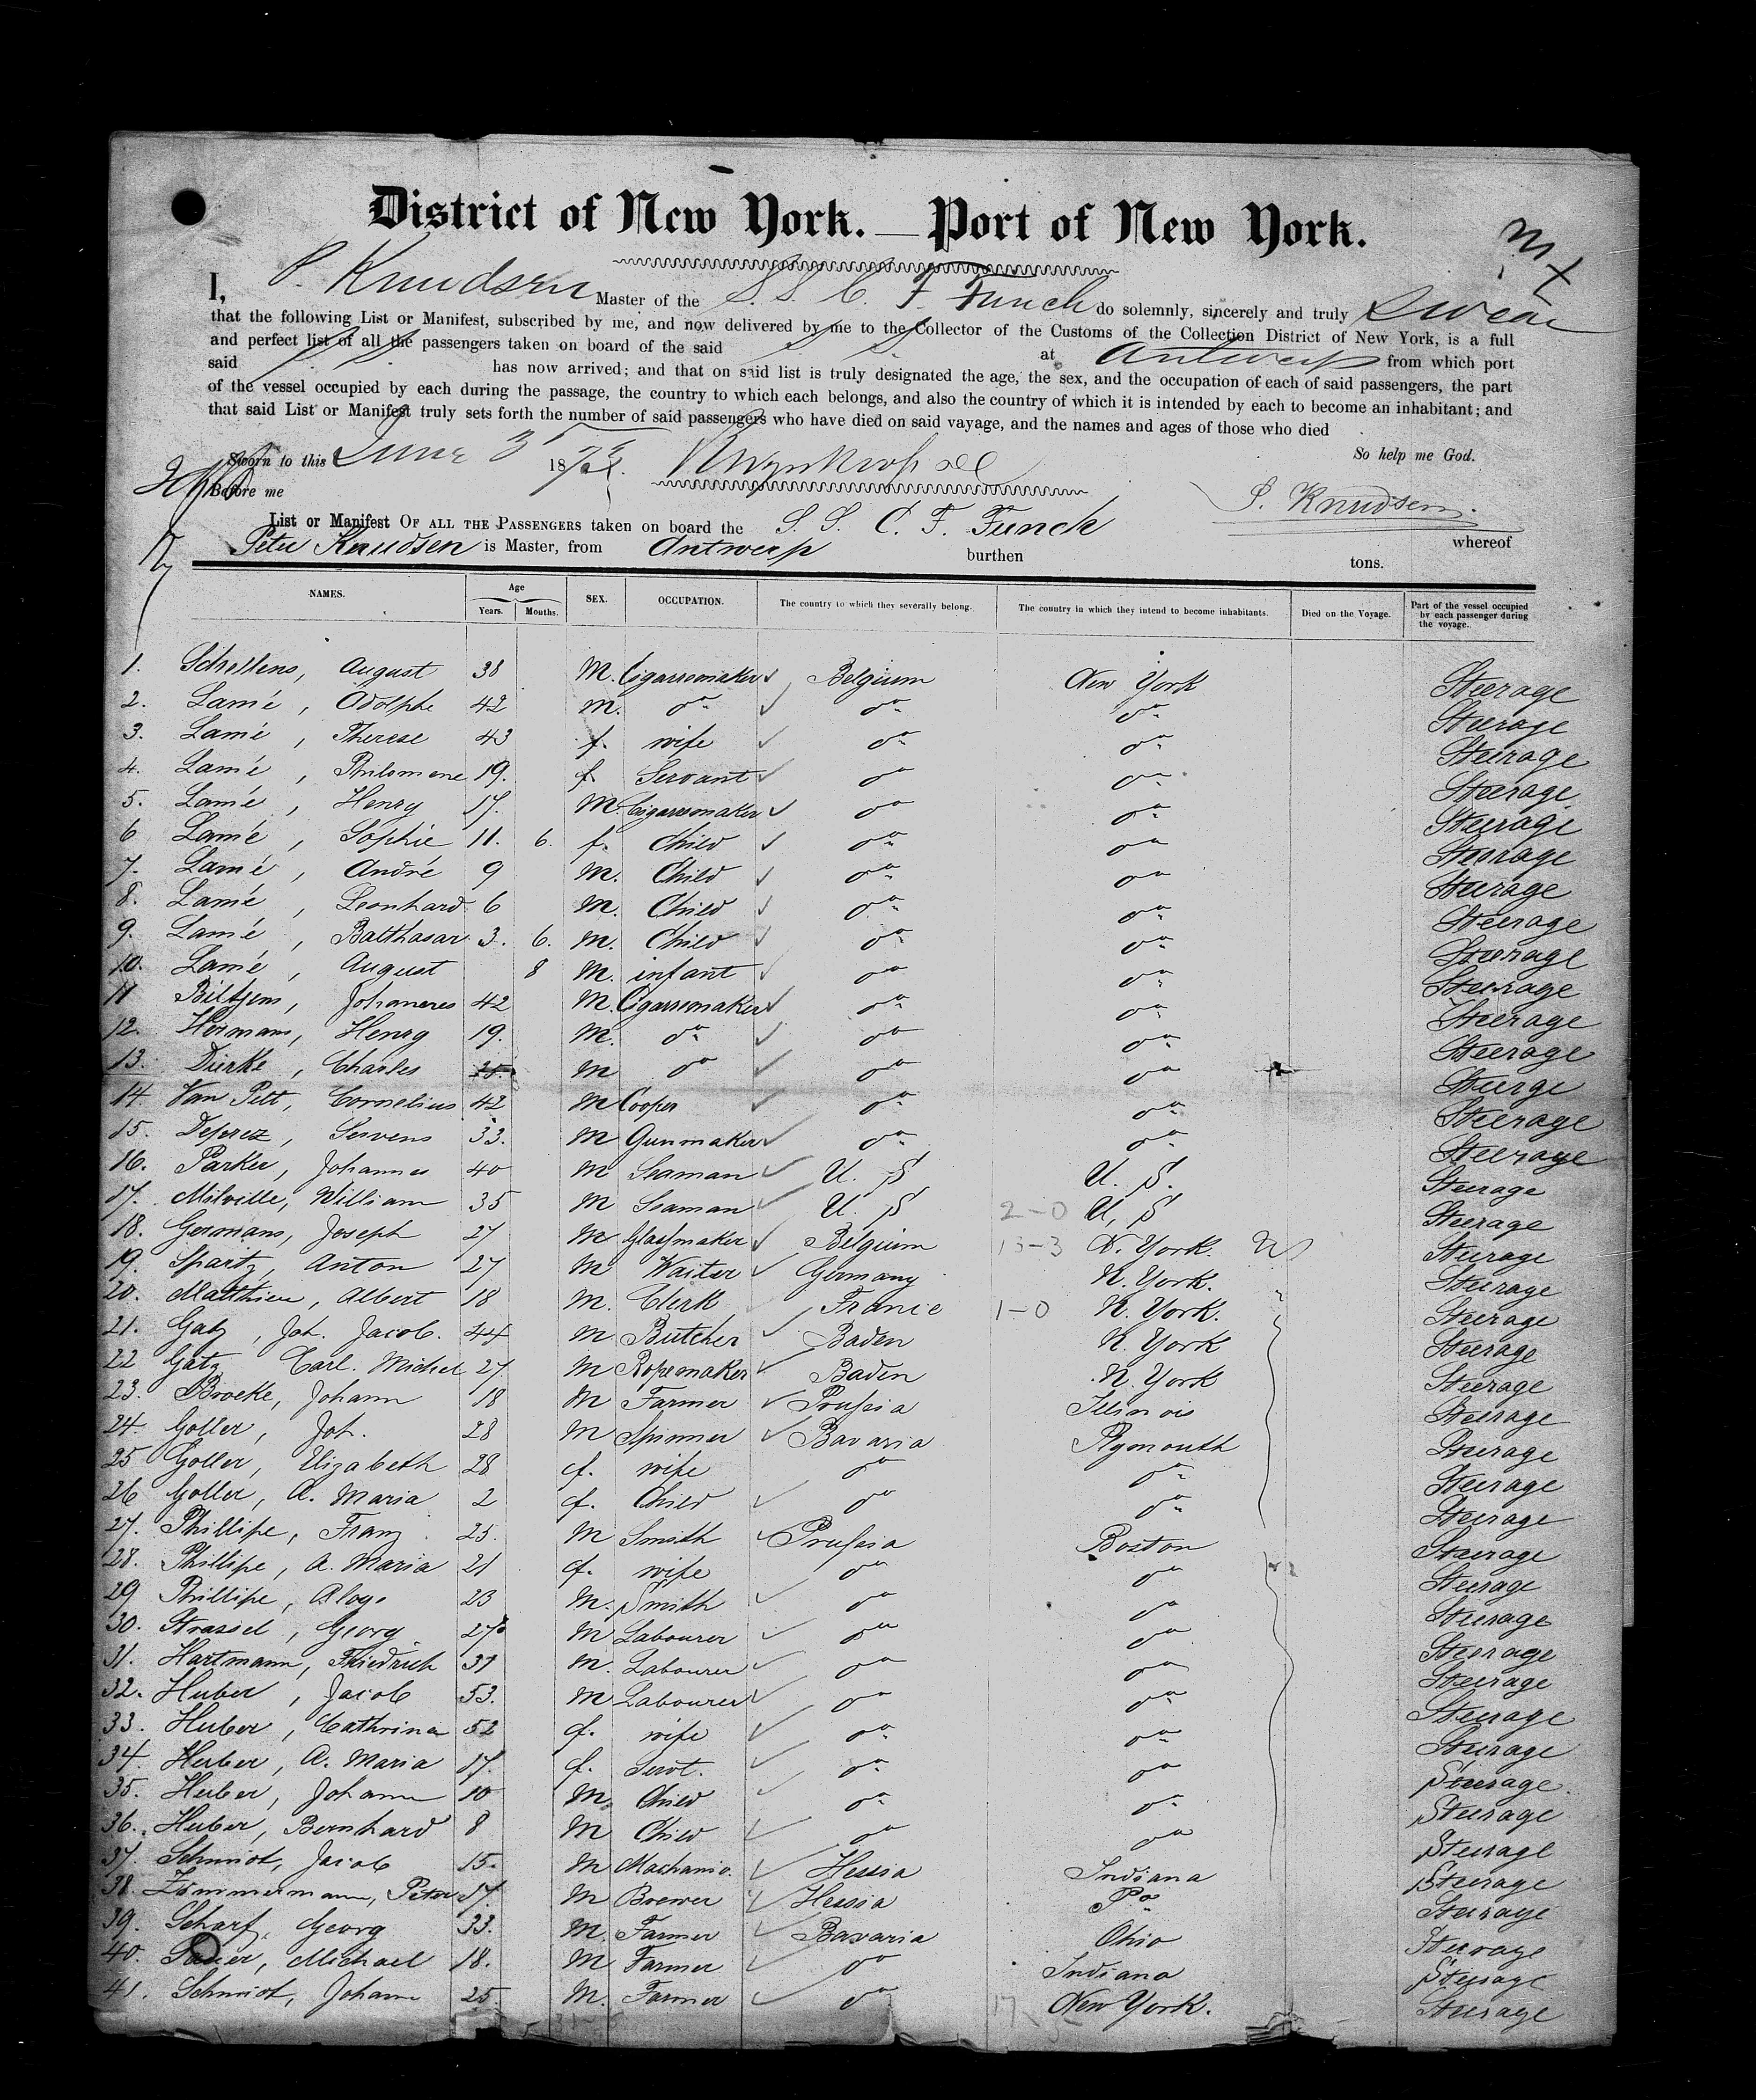 District of New York. — Port of New York.
I, P. Knudsen Master of the S. S. C. F. Funch do solemnly, sincerely and truly Swear
that the following List or Manifest, subscribed by me, and now delivered by me to the Collector of the Customs of the Collection District of New York, is a full
and perfect list of all the passengers taken on board of the said S S at Antwerp from which port
said S. S. has now arrived; and that on said list is truly designated the age, the sex, and the occupation of each of said passengers, the part
of the vessel occupied by each during the passage, the country to which each belongs, and also the country of which it is intended by each to become an inhabitant; and
that said List or Manifest truly sets forth the number of said passengers who have died on said vayage, and the names and ages of those who died
Sworn to this June 3 18 So help me God.
Before me P. Knudsen.
List or Manifest OF ALL THE PASSENGERS taken on board the S. S. C. F. Funck whereof
Peter Knudsen is Master, from Antwerp burthen tons.
NAMES. Age Years. Mouths. SEX. OCCUPATION. The country to which they severally belong. The country in which they intend to become inhabitants. Died on the Voyage. Part of the vessel occupied by each passenger during the voyage.
1. August 38 M. Cigarremaker Belgium New York Steerage
2. Lamé, Adolphe 42 m. do do do Steerage
3. Lamé, Therese 43 f. wife do do Steerage
4. Lamé, Philomene 19. f Servant do do Steerage
5. Lamé, Henry 17. M. Cigarremaker do do Steerage
6 Lamé, Sophie 11. 6. f. Child do do Steerage
7. Lamé, André 9 M. Child do do Steerage
8. Lamé, Leonhard 6 M. Child do do Steerage
9. Lamé, Balthasar 3. 6. M. Child do do Steerage
10. Lamé, August 8 M. infant do do Steerage
11 Biltjens, Johannes 42 M. Cigarremaker do do Steerage
12. Hermans, Henry 19. M. do do do Steerage
13. Dierke, Charles M do do do Steerge
14. Van Pelt, Cornelius 42 M Cooper do do Steerage
15. Deprez, Servens 33. M Gunmaker do do Steerage
16. Parker, Johannes 40 M Seaman U. S U. S. Steerage
17. Milville, William 35 M Seaman U. S 2-0 U, S Steerage
18. Germans, Joseph 27 M Glassmaker Belgium 13-3 N. York. Steerage
19. Spaitz, Anton 27 M Waiter Germany N. York. Steerage
20. Matthieu, Albert 18 M. Clerk France 1-0 N. York. Steerage
21. Gatz, Joh. Jacob. 44 M Butcher Baden N. York Steerage
22 Gatz Carl. Michel 27 M Ropemaker Baden N. York Steerage
23. Broeke, Johann 18 M Farmer Prussia Illinois Steerage
24. Goller, Joh. 28 M Spinner Bavaria Plymouth Steerage
25 Goller, Elizabeth 28 f. wife do do Steerage
26 Goller, A. Maria 2 f. Child do do Steerage
27. Phillipe, Franz 25. M Smith Prussia Boston Steerage
28. Phillipe, A. Maria 21 f. wife do do Steerage
29 Phillipe, Aloys 23 M. Smith do do Steerage
30. Strassel, Georg 27 M Labourer do do Steerage
31. Hartmann, Friedrich 31 M. Labourer do do Steerage
32. Huber, Jacob 53. M Labourer do do Steerage
33. Huber, Cathrina 52 f. wife do do Steerage
34. Huber, A. Maria 17. f. Servt. do do Steerage
35. Huber, Johann 10 M. Child do do Steerage
36. Huber, Bernhard 8 M Child do do Steerage
37. Schmidt, Jacob 15. M Machanic. Hessia Indiana Steerage
38. Zimmermann, Peter 17. M Brewer Hessia Do Steerage
39. Scharf, Georg 33. M. Farmer Bavaria Ohio Steerage
40. Michael 18. M Farmer do Indiana Steerage
41. Schmidt, Johann 25 M. Farmer do New York. Steerage